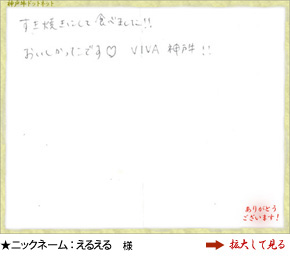 神戸牛ドットネット
すき焼きにして食べました!!
おいしかったです♡ VIVA 神戸牛 !!
ありがとう
ございます!
★ニックネーム：えるえる 様
➡ 拡大して見る